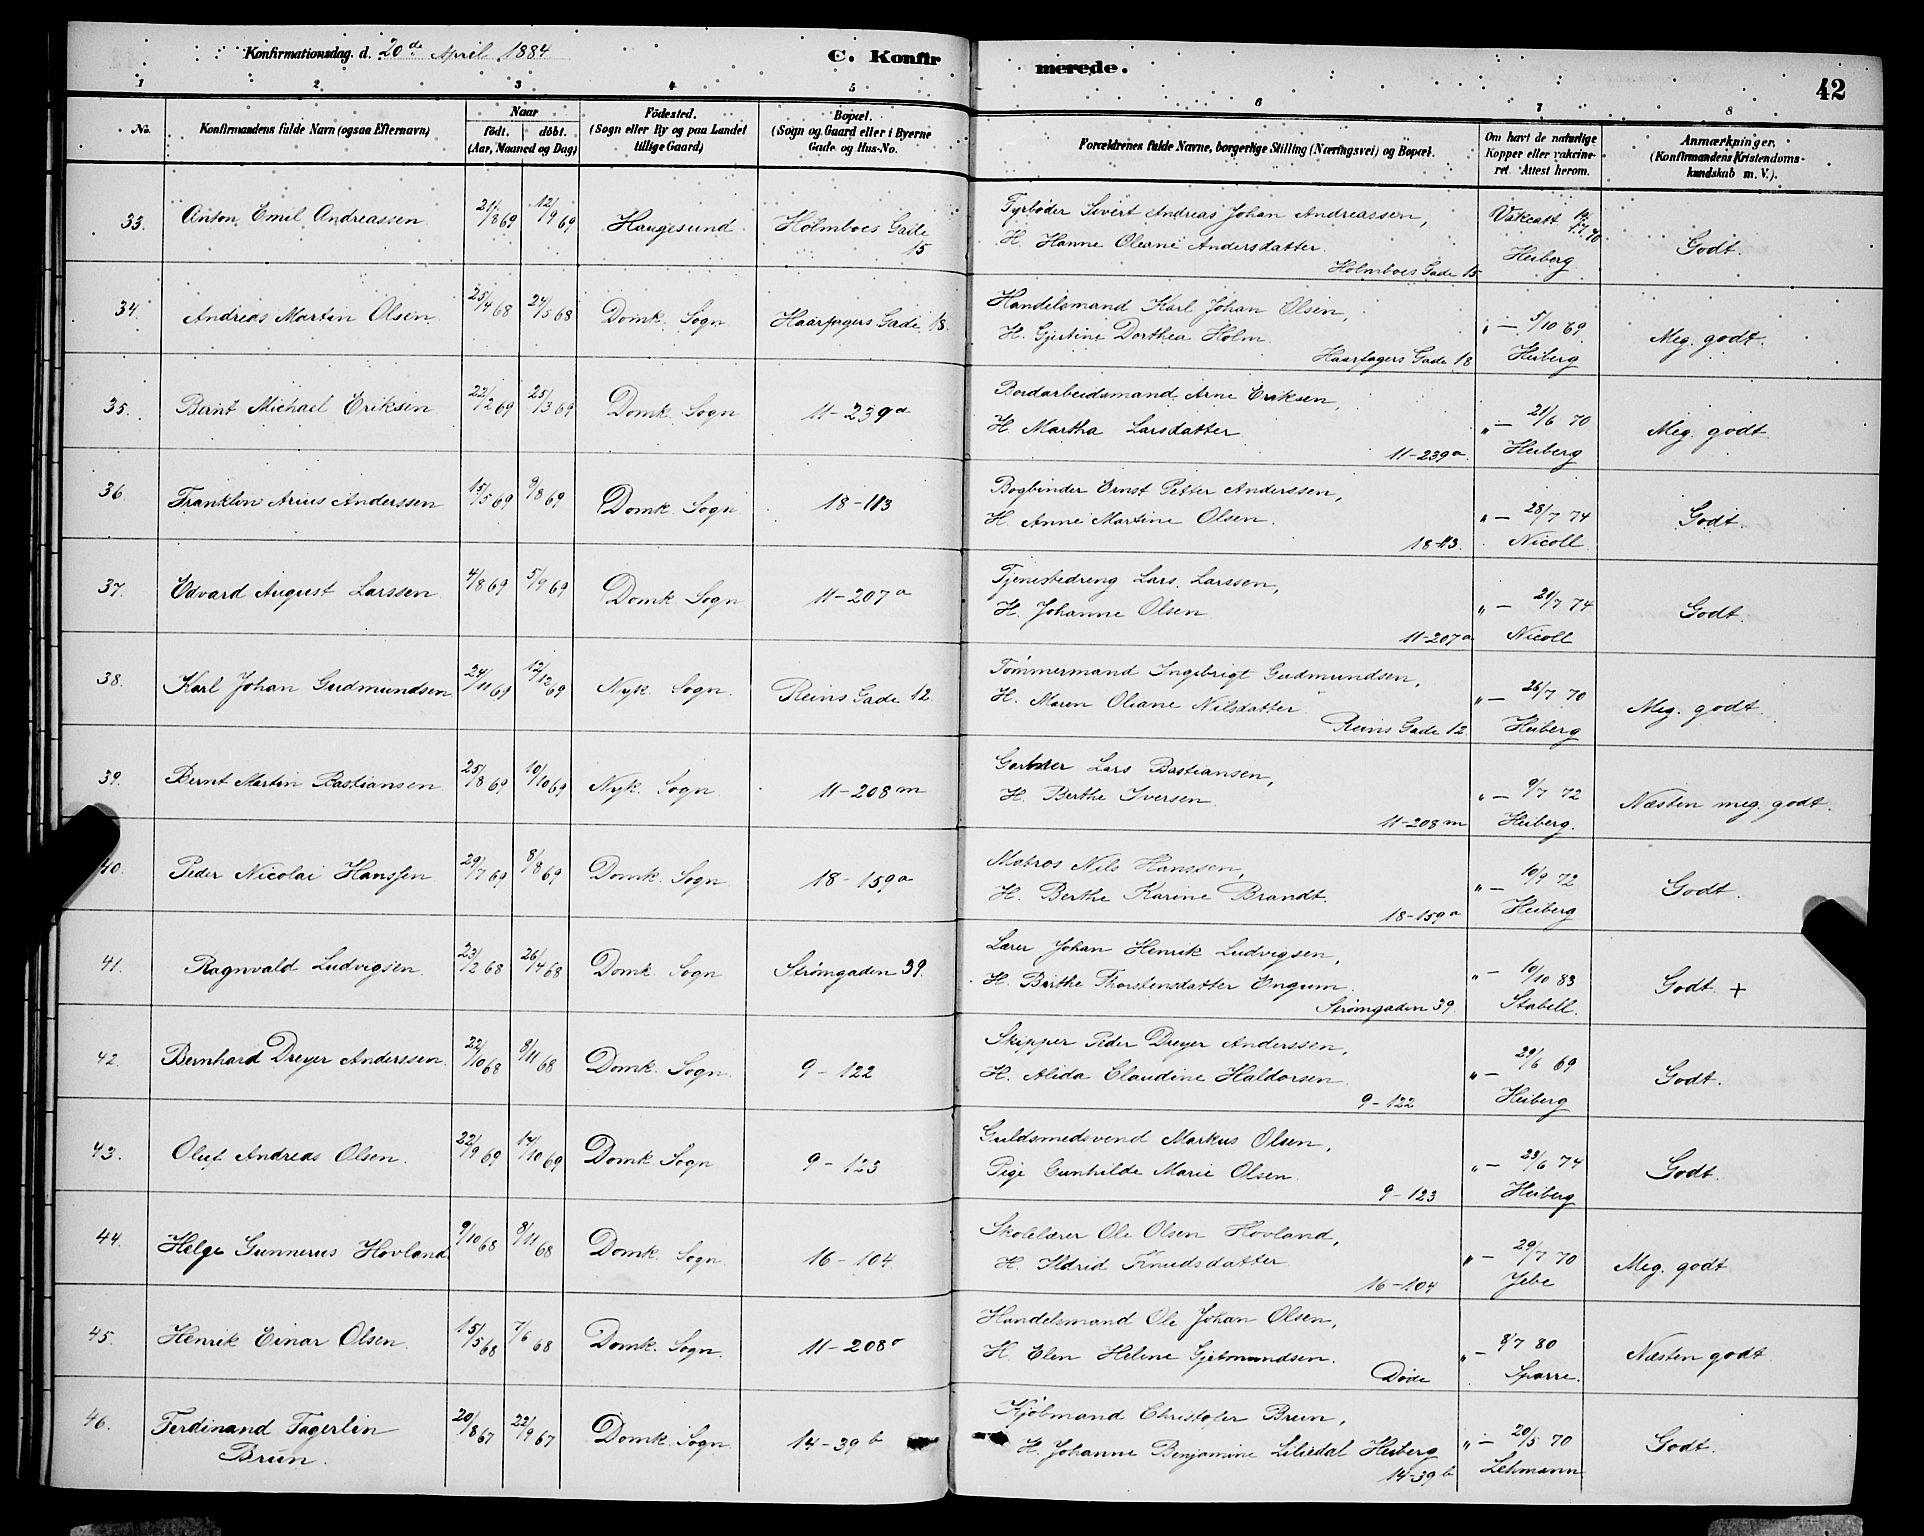 Konfirmationsdag. d. 20de April 1884
C. Konfirmerede.
42
1 2 3 4 5 6 7 8
No. Konfirmandens fulde Navn (ogsaa Efternavn) Naar födt. döbt. (Aar, Maaned og Dag) Födested. (Sogn eller By og paa Landet tillige Gaard) Bopæl. (Sogn og Gaard eller i Byerne Gade og Hus-No. Forældrenes fulde Navne, borgerlige Stilling (Næringsvei) og Bopæl. Om havt de naturlige Kopper eller vakcineret. Attest herom. Anmærkninger. (Konfirmandens Kristendomskundskab m. V.).
33. Anton Emil Andreassen 21/8 69 12/9 69 Haugesund Holmboes Gade 15 Fyrbøder Sivert Andreas Johan Andreassen,
H. Hanne Oleane Andersdatter.
Holmboes Gade 15 Vakcatt Heiberg Godt.
34. Andreas Martin Olsen 25/4 68 24/5 68 Domk. Sogn Haarfagers Gade 18. Handelsmand Karl Johan Olsen,
H. Gjertine Dorthea Holm
Haarfagers Gade 18 " — 5/10 69 Heiberg Meg. godt.
35. Bernt Michael Eriksen 22/2 69 25/3 69 Domk. Sogn 11-239a Bordarbeidsmand Arne Eriksen,
H. Martha Larsdatter
11-239a " — 21/6 70 Heiberg Meg. godt
36. Franklin Arius Anderssen 15/5 69 9/8 69 Domk. Sogn 18-113 Bogbinder Ernst Petter Anderssen,
H. Anne Martine Olsen.
18-113. " — 28/7 74 Nicoll Godt.
37. Edvard August Larssen 4/8 69 5/9 69 Domk. Sogn 11-207a Tjenestedreng Lars Larssen,
H. Johanne Olsen
11-207a " — 20/7 74 Nicoll Godt.
38. Karl Johan Gudmundsen 24/11 69 12/12 69 Nyk. Sogn. Reins Gade 12 Tømmermand Ingebrigt Gudmundsen,
H. Maren Oliane Nilsdatter
Reins Gade 12 " — 26/7 70 Heiberg Meg. godt
39. Bernt Martin Bastiansen 25/8 69 10/10 69 Nyk. Sogn 11-208m Gartner Lars Bastiansen,
H. Berthe Iversen
11-208m " — 9/7 72 Heiberg. Næsten meg. godt.
40. Peder Nicolai Hanssen 29/7 69 8/8 69 Domk. Sogn 18-159a Matros Nils Hanssen,
H. Berthe Karine Brandt.
18-159a " — 10/9 72 Heiberg Godt.
41. Ragnvald Ludvigsen 23/2 68 26/4 68 Domk. Sogn Strømgaden 39. Lærer Johan Henrik Ludvigsen,
H. Birthe Thorstensdatter Engum.
Strømgaden 39 " — 10/10 83 Stabell. Godt. +
42. Bernhard Dreyer Anderssen. 22/10 68 8/11 68 Domk. Sogn. 9-122 Skipper Peder Dreyer Anderssen,
H. Alida Claudine Haldorsen
9-122 " — 29/6 69 Heiberg Godt.
43. Oluf Andreas Olsen. 22/9 69 17/10 69 Domk. Sogn 9-123 Guldsmedsvend Markus Olsen,
Pige Gunhilde Marie Olsen
9-123 " — 23/6 74 Heiberg Godt.
44. Helge Gunnerus Hovland 9/10 68 8/11 68 Domk. Sogn. 16-104 Skolelærer Ole Olsen Hovland,
H. Ildrid Knudsdatter
16-104 " — 29/7 70 Jebe Meg. godt
45. Henrik Einar Olsen. 15/5 68 7/6 68 Domk. Sogn. 11-208o Handelsmand Ole Johan Olsen,
H. Elen Helene Gjetmundsen.
Døde " — 8/7 80 Sparre. Næsten godt
46. Ferdinand Fagerlin Brun. 20/8 67 22/9 67 Domk. Sogn. 14-39b Kjöbmand Christofer Brun,
H. Johanne Benjamine Liliedal Heiberg
14-39b " — 20/5 70 Lehmann Godt.